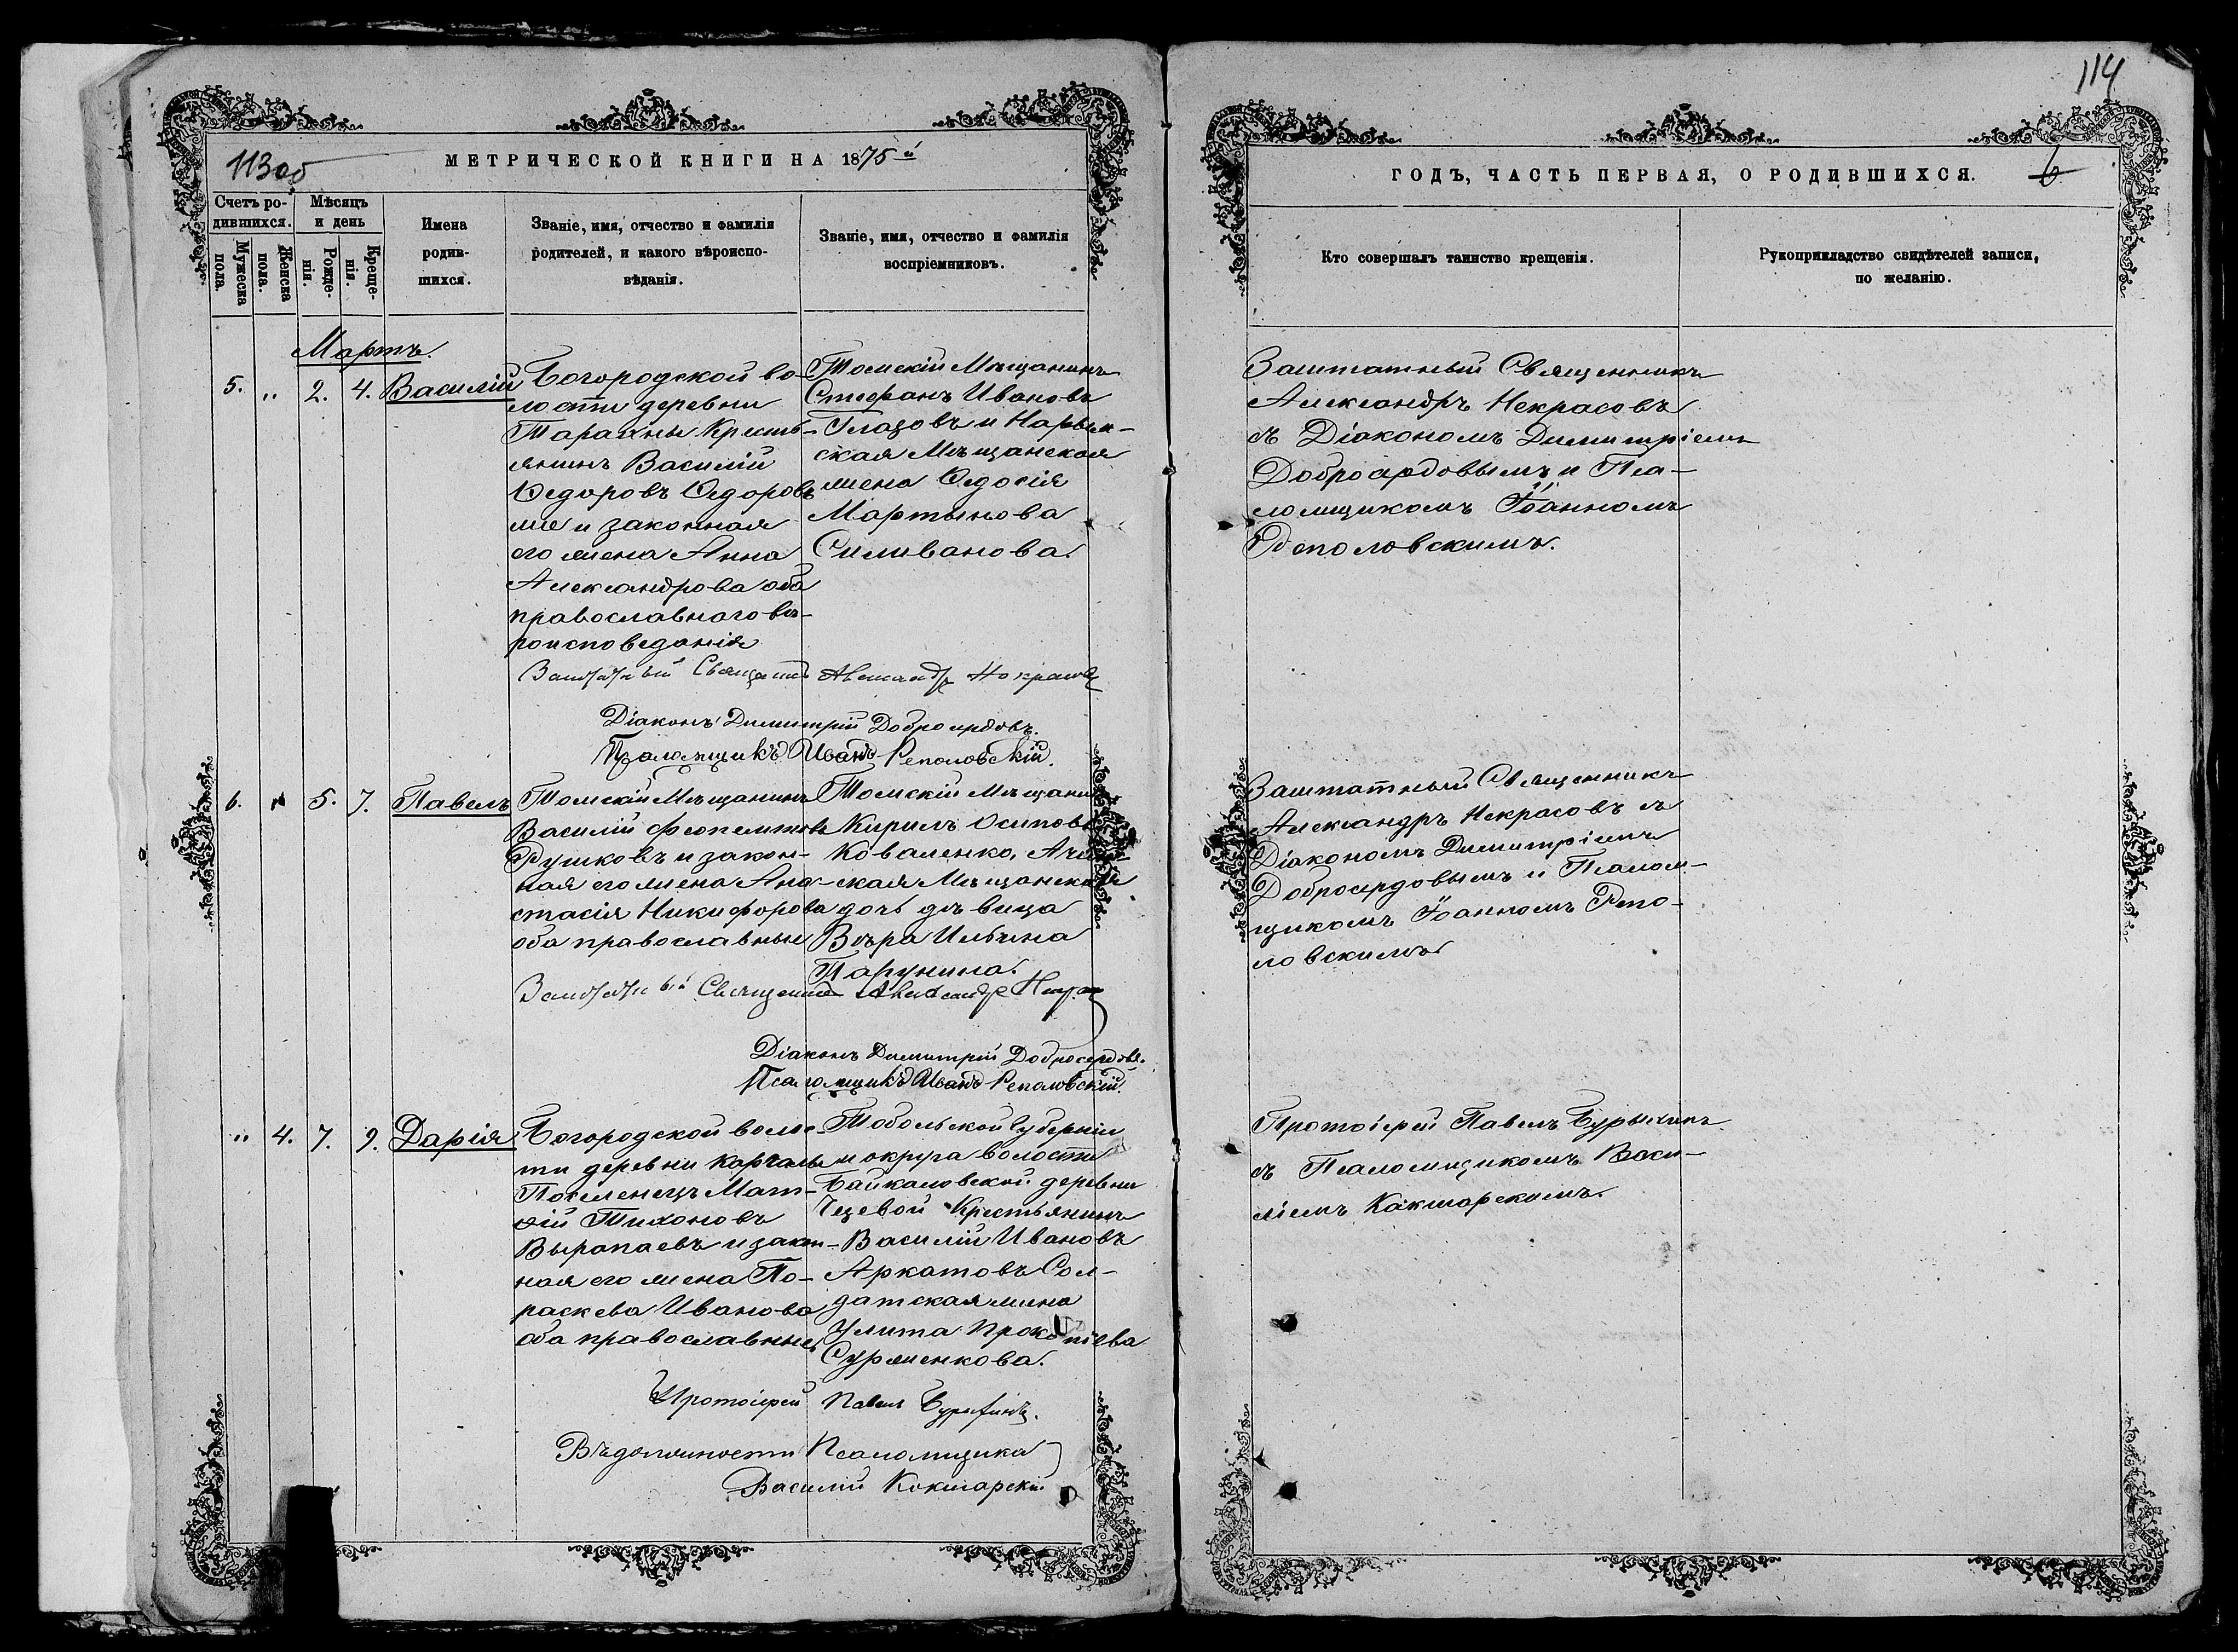 113об
МЕТРИЧЕСКОЙ КНИГИ НА 1875й
Счетъ ро-
дившихся.
Мѣсяцъ
и день
Мужеска
пола.
Женска
пола.
Рожде-
нія.
Креще-
нія.
Имена
родив-
шихся.
Званіе, имя, отчество и фамилія
родителей, и какого вѣроиспо-
вѣданія.
Званіе, имя, отчество и фамилія
воспріемниковъ.
Мартъ.
5. „ 2. 4. Василій
Богородской во-
лости деревни
Таракны Кресть-
янинъ Василій
Ѳедоровъ Ѳедоровъ
же и законная
его жена Анна
Александрова оба
православнаго вѣ-
роисповеданія
Томскій Мѣщанинъ
Стефанъ Ивановъ
Глазовъ и Нарым-
ская Мѣщанская
жена Ѳедосія
Мартынова
Силиванова.
Заштатный Священникъ Александръ Некрасовъ
Діаконъ Димитрій Добросердовъ.
Псаломщикъ Иванъ Реполовскій.
6. „ 5. 7. Павелъ
Томскій Мѣщанинъ
Василій Феопемптовъ
Рушковъ и закон-
ная его жена Ана-
стасія Никифорова
оба православные
Томскій Мѣщанинъ
Кирилъ Осиповъ
Коваленко, Ачин-
ская Мѣщанская
дочь дѣвица
Вѣра Ильина
Парунина.
Заштатный Священникъ Александръ
Діаконъ Димитрій Добросердовъ.
Псаломщикъ Иванъ Реполовскій.
„ 4. 7. 9. Дарія
Богородской волос-
ти деревни Каргалы
Поселенецъ Мат-
ѳій Тихоновъ
Вырапаевъ и закон-
ная его жена По-
раскева Иванова
оба православные
Тобольской губерніи
и округа волости
Байкаловской деревни
Чезевой Крестьянинъ
Василій Ивановъ
Аркатовъ Сол-
датская жена
Улита Прокопіева
Сурженкова.
Протоіерей Павелъ
Въ должности Псаломщика
Василій Кокшарскій
114
ГОДЪ, ЧАСТЬ ПЕРВАЯ, О РОДИВШИХСЯ.
6
Кто совершалъ таинство крещенія.
Рукоприкладство свидѣтелей записи,
по желанію.
Заштатный Священникъ
Александръ Некрасовъ
съ Діакономъ Димитріемъ
Добросердовымъ и Пса-
ломщикомъ Іоанномъ
Реполовскимъ.
Заштатный Священникъ
Александръ Некрасовъ съ
Діакономъ Димитріемъ
Добросердовымъ и Псалом-
щикомъ Іоанномъ Репо-
ловскимъ
Протоіерей Павелъ
съ Псаломщикомъ Васи-
ліемъ Кокшарскомъ.